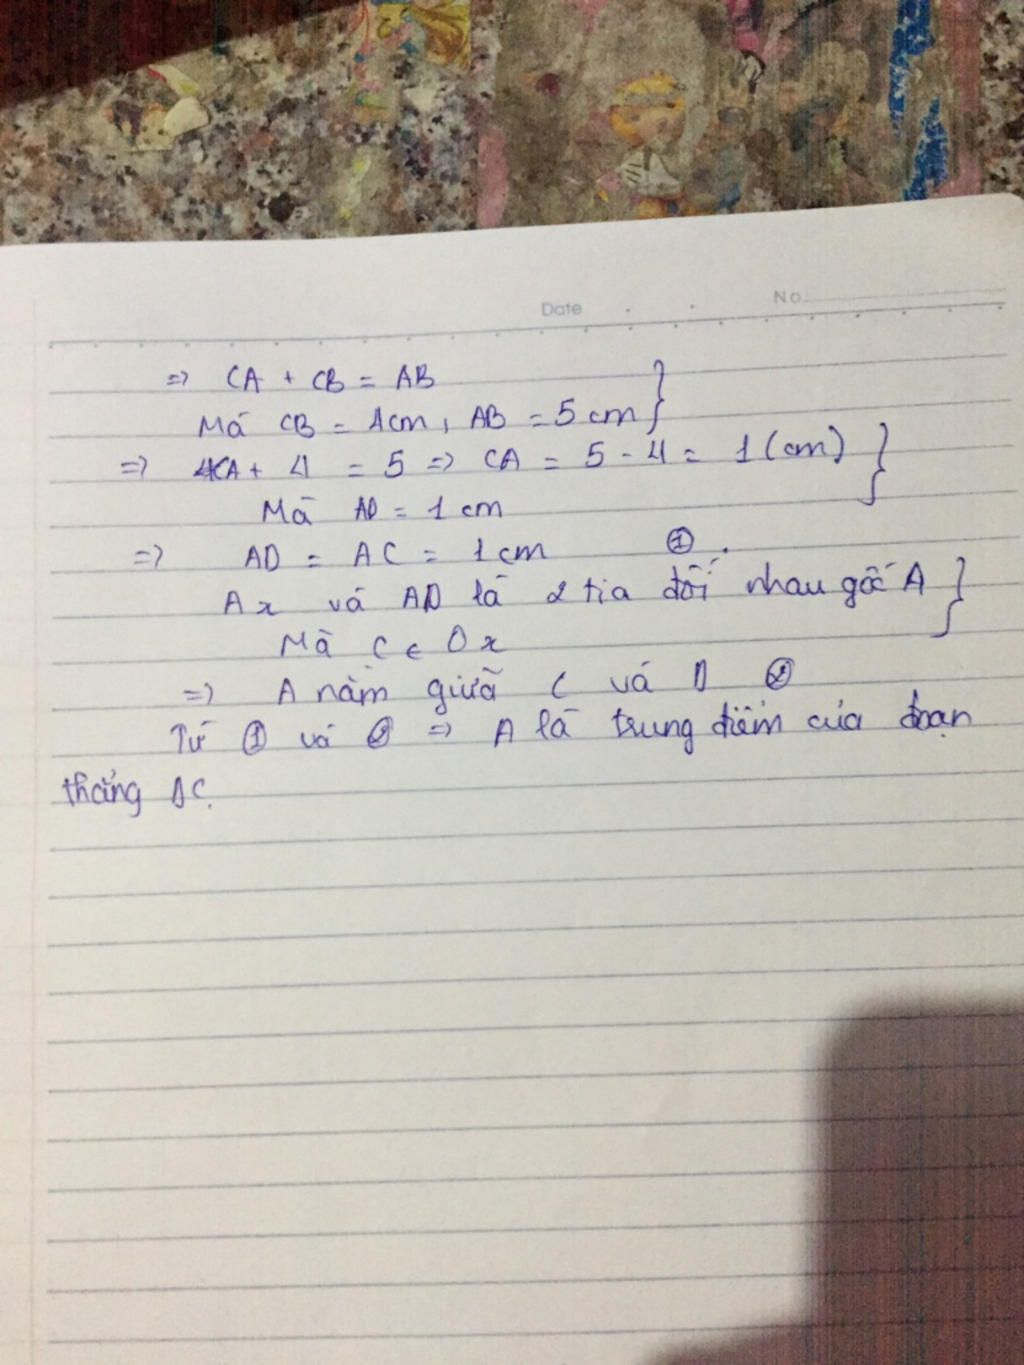 Date No
=> CA + CB = AB }
Mà CB = 4cm, AB = 5 cm }
=> CA + 4 = 5 => CA = 5 - 4 = 1 (cm) }
Mà AD = 1 cm
=> AD = AC = 1 cm ①.
Ax và AD là 2 tia đối nhau gốc A }
Mà C ∈ Ox
=> A nằm giữa C và D ②
Từ ① và ② => A là trung điểm của đoạn
thẳng DC.